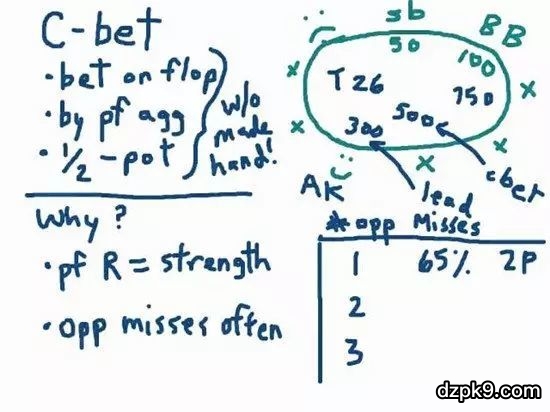 C-bet
• bet on flop
• by pf agg
• 1/2 - pot
w/o
made
hand!
sb
BB
50
100
T 2 6
750
500
300
AK
lead
cbet
Why?
• pf R = strength
• opp misses often
# opp Misses
1 65% 2P
2
3
dzpk9.com